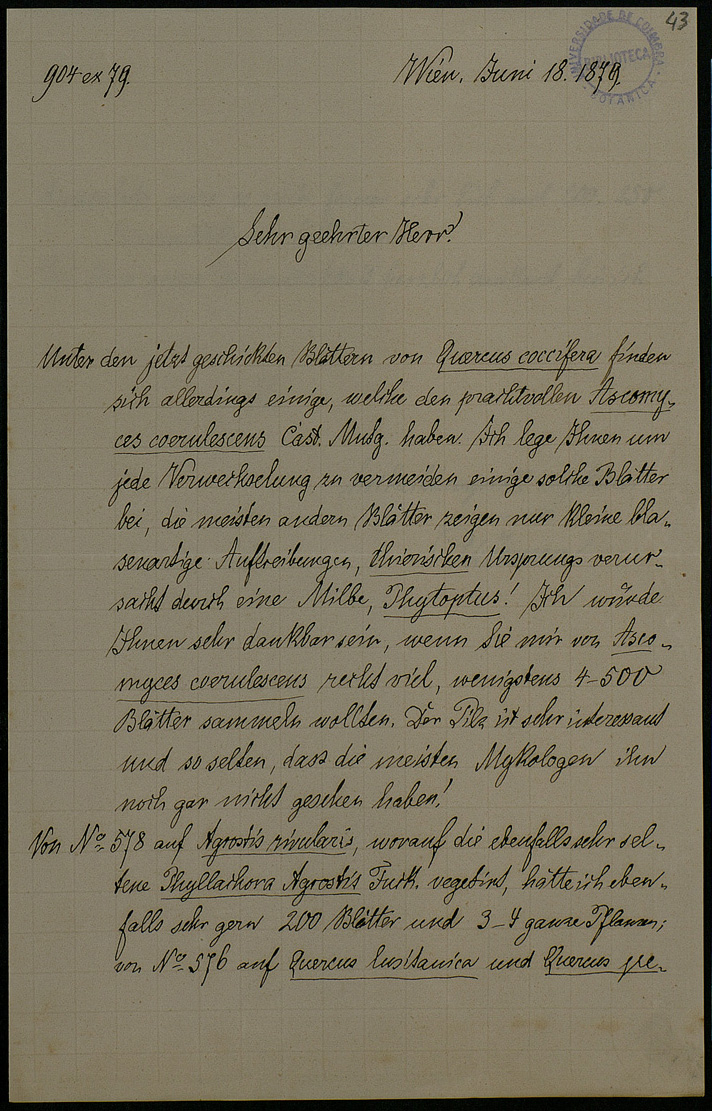 43
UNIVERSIDADE DE COIMBRA
BIBLIOTECA
BOTANICA
904 ex 79.
Wien, Juni 18. 1879.
Sehr geehrter Herr!
Unter den jetzt geschickten Blättern von Quercus coccifera finden
sich allerdings einige, welche den prachtvollen Ascomy-
ces coerulescens Cast. Mntg. haben. Ich lege Ihnen um
jede Verwechselung zu vermeiden einige solche Blätter
bei, die meisten andern Blätter zeigen nur kleine bla-
senartige Auftreibungen, thierischen Ursprungs verur-
sacht durch eine Milbe, Phytoptus! Ich würde
Ihnen sehr dankbar sein, wenn Sie mir von Asco-
myces coerulescens recht viel, wenigstens 4-500
Blätter sammeln wollten. Der Pilz ist sehr interessant
und so selten, dass die meisten Mykologen ihn
noch gar nicht gesehen haben!
Von No 578 auf Agrostis rivularis, worauf die ebenfalls sehr sel-
tene Phyllachora Agrostis Fuck. vegetirt, hätte ich eben-
falls sehr gern 200 Blätter und 3-4 ganze Pflanzen;
von No 576 auf Quercus lusitanica und Quercus pe-